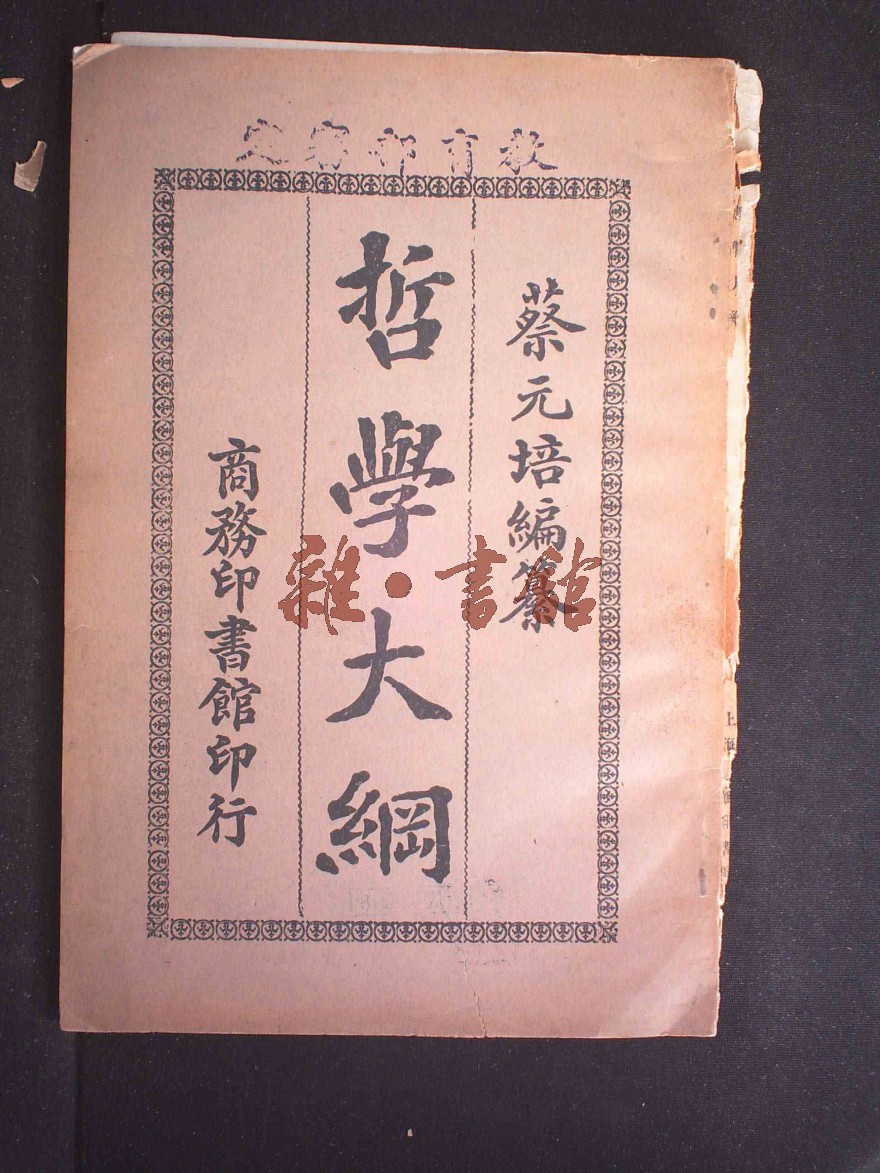 教育部審定
蔡元培編纂
哲學大綱
商務印書館印行
雜·書館
上海